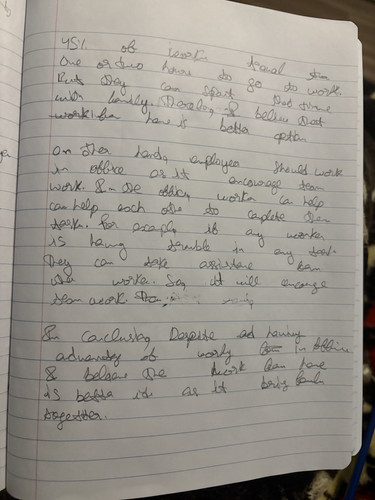 45% of worker travel
one or two hour to go to work
But they can spent that time
with family. Therefore, I believe that
work from home is better option
on other hand, employee should work
in office as it encourage team
work. In the office, worker can help
can help each other to complete their
task. For example, if any worker
is having trouble in any task.
They can take assistance from
other worker. So, it will encourage
team work
In conclusion, Despite
advantag of working in office
I believe the work from home
is better it as it bring family
together.